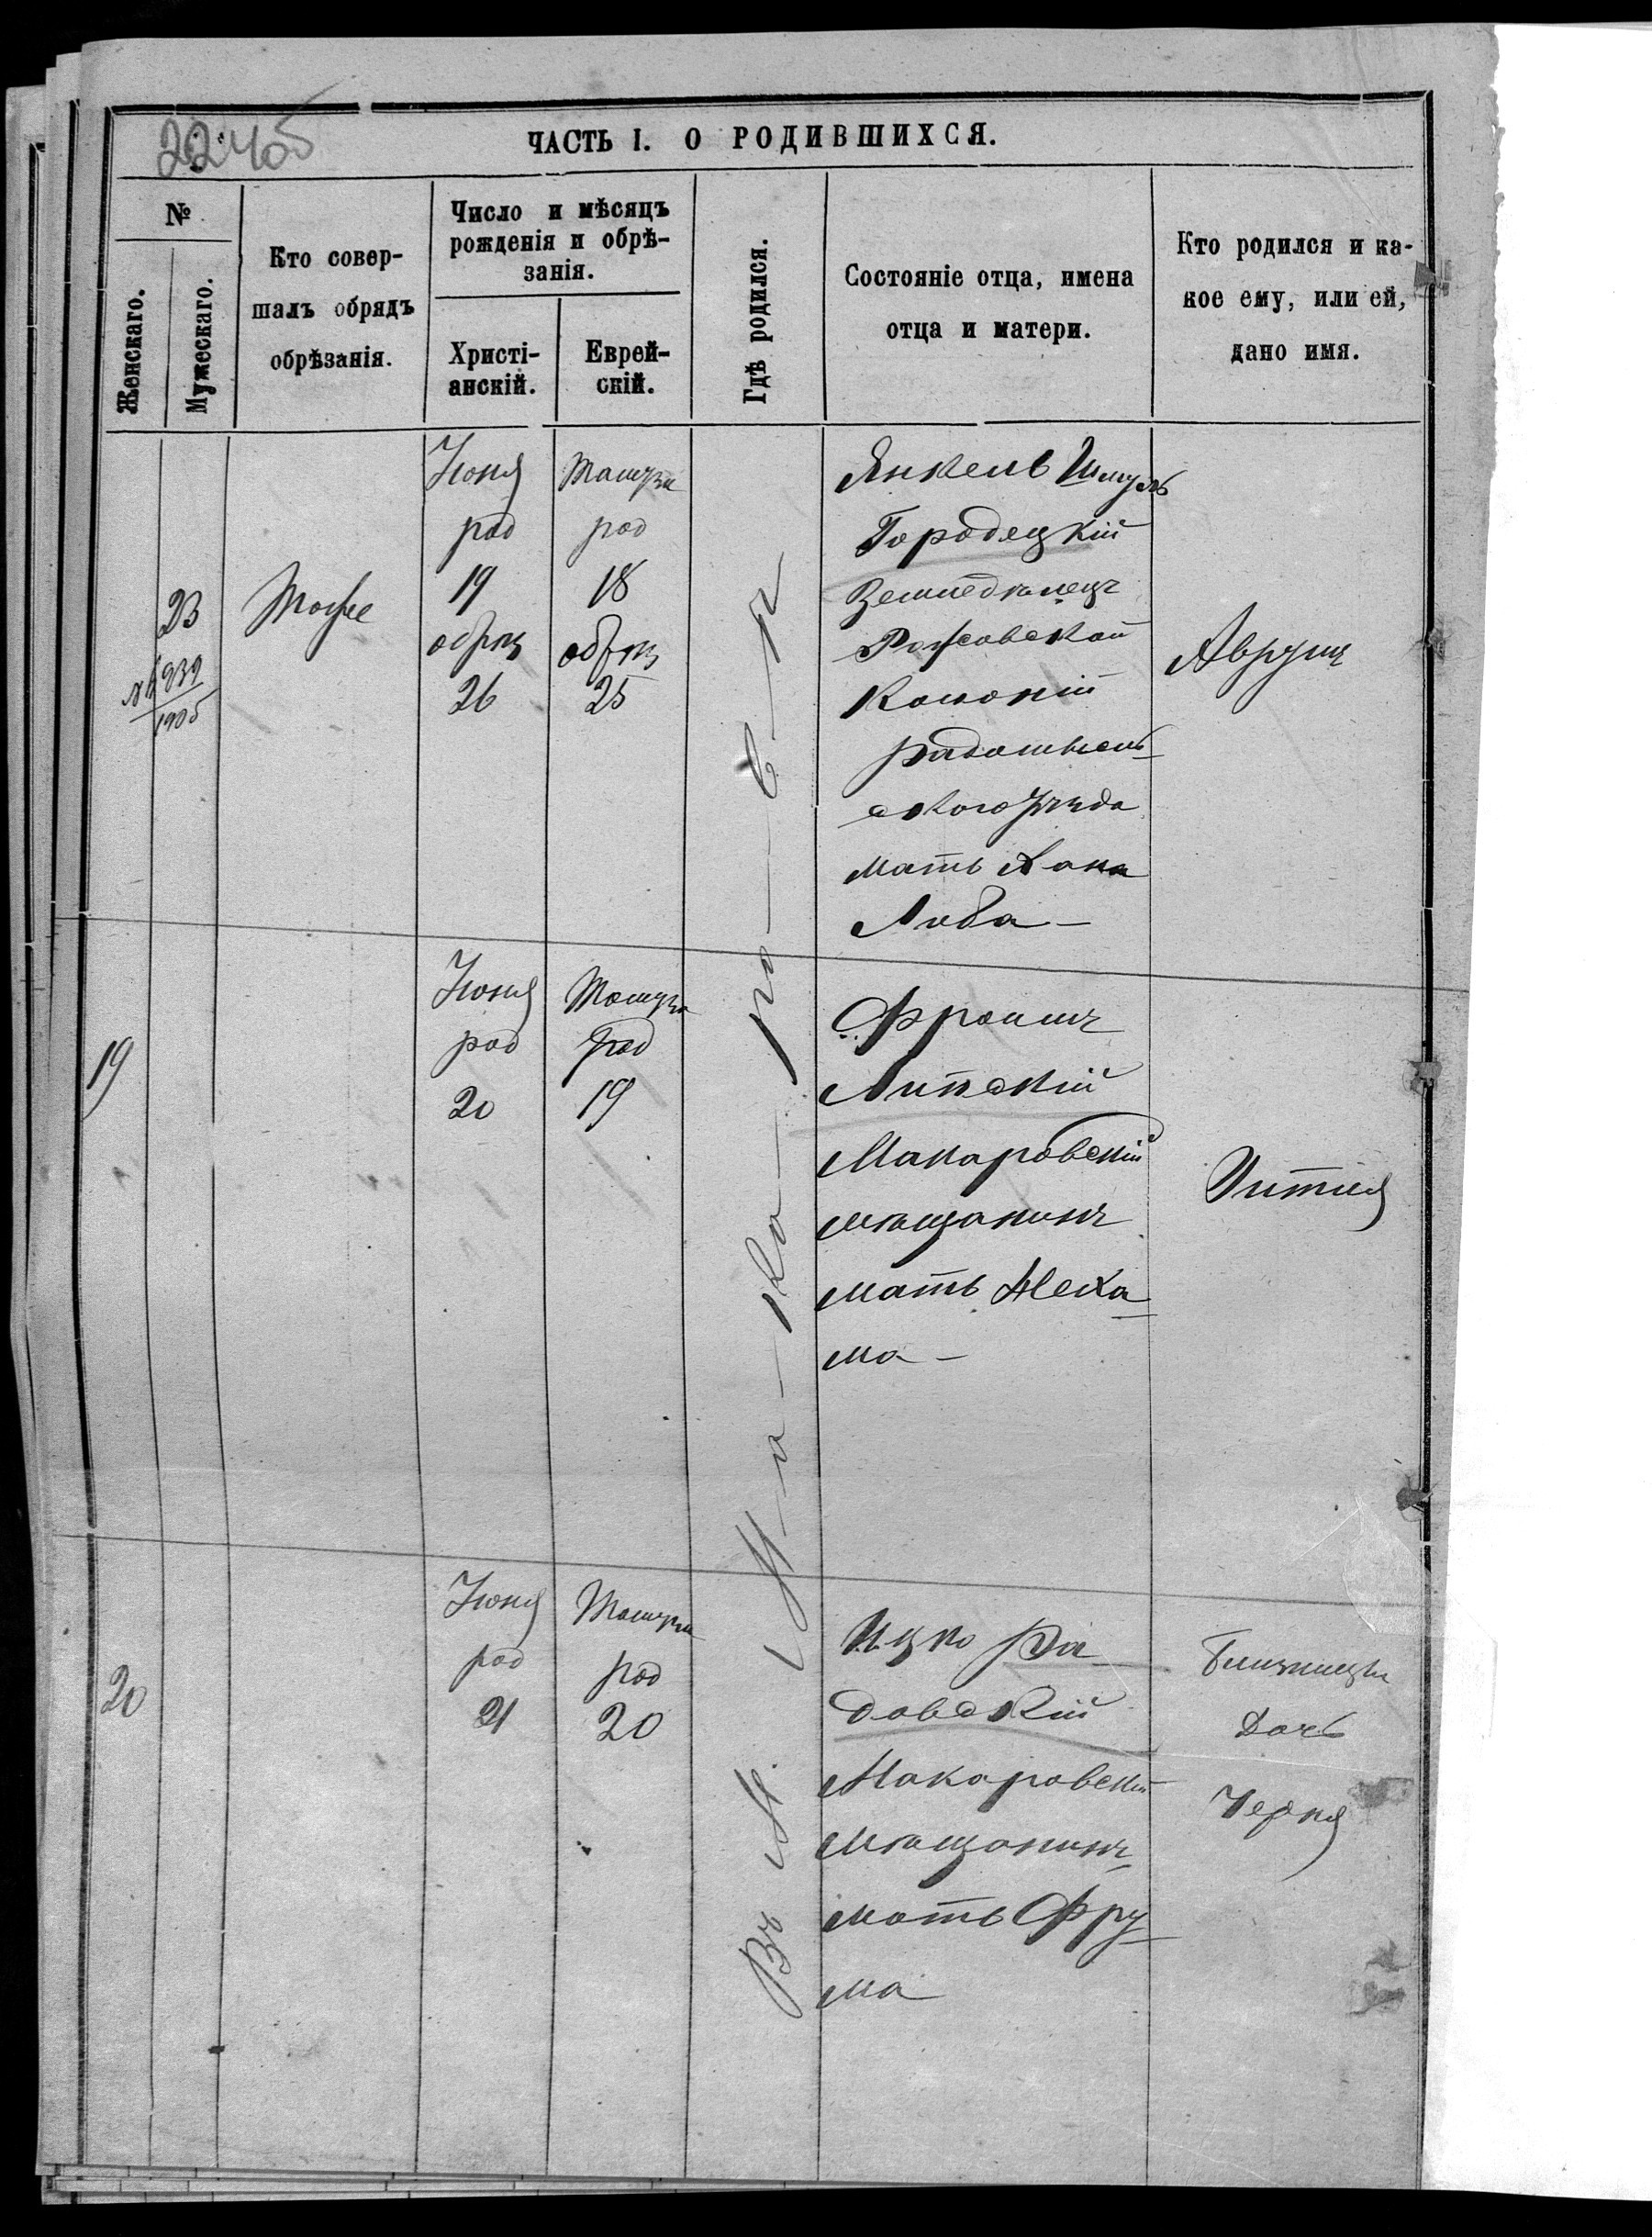 22 об
ЧАСТЬ I. О РОДИВШИХСЯ.
№
Женскаго.
Мужескаго.
Кто совер-
шалъ обрядъ
обрѣзанія.
Число и мѣсяцъ
рожденія и обрѣ-
занія.
Христі-
анскій.
Еврей-
скій.
Гдѣ родился.
Состояніе отца, имена
отца и матери.
Кто родился и ка-
кое ему, или ей,
дано имя.
23
1905
Тотъ же
Іюня
род
19
обрѣз
26
Тамуза
род
18
обрѣз
25
Въ М. Ма-ка-ро-в-ѣ
Янкель Шмуль
Городецкій
Земледѣлецъ
Рожовской
Колоніи
Радомысль-
скаго Уѣзда
мать Хана
Люба -
Аврумъ
19
Іюня
род
20
Тамуза
род
19
Фроимъ
Липскій
Макаровскій
мѣщанинъ
мать Неха-
ма -
20
Іюня
род
21
Тамуза
род
20
Ицко Ра-
довскій
Макаровскій
мѣщанинъ
мать Фру-
ма
Близнецы
Дочь
Черня